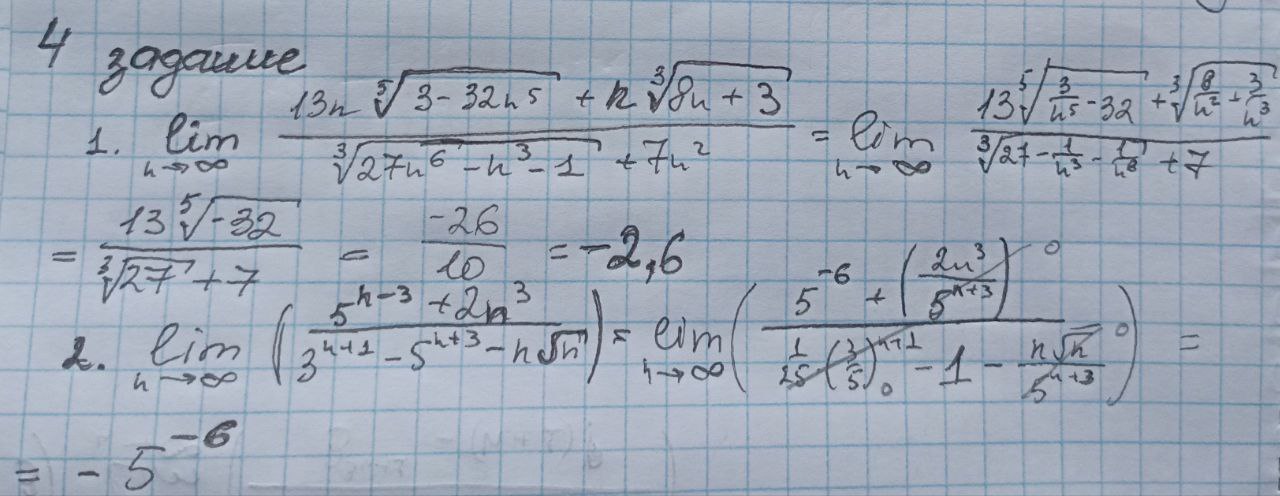 4 задание
1. lim n→∞ (13n ⁵√(3 - 32n⁵) + n ³√(8n + 3)) / (³√(27n⁶ - n³ - 1) + 7n²) = lim n→∞ (13 ⁵√(3/n⁵ - 32) + ³√(8/n² + 3/n³)) / (³√(27 - 1/n³ - 1/n⁶) + 7)
= (13 ⁵√(-32)) / (³√27 + 7) = -26/10 = -2,6
2. lim n→∞ ((5ⁿ⁻³ + 2n³) / (3ⁿ⁺¹ - 5ⁿ⁺³ - n√n)) = lim n→∞ ((5⁻⁶ + (2n³/5ⁿ⁺³) 0) / (1/25 (3/5)ⁿ⁺¹ 0 - 1 - n√n/5ⁿ⁺³ 0)) =
= - 5⁻⁶